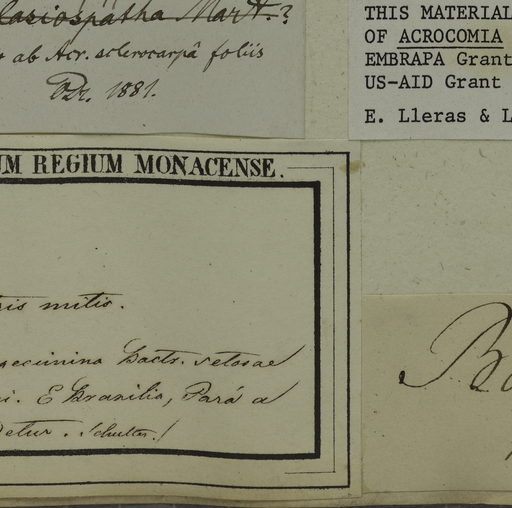 lasiospatha Mart.?
ab Acr. sclerocarpâ foliis
Dr. 1881.
THIS MATERIAL
OF ACROCOMIA
EMBRAPA Grant
US-AID Grant
E. Lleras & L
UM REGIUM MONACENSE.
ris mitis.
pecimina Bactr. setosae
i. E Brasilia, Pará a
Detur. Schultes.!